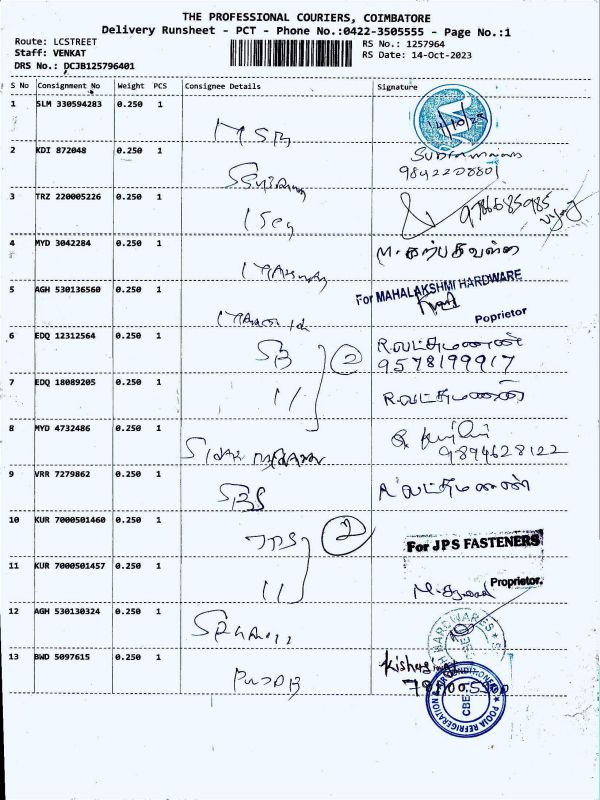 THE PROFESSIONAL COURIERS, COIMBATORE
Delivery Runsheet - PCT - Phone No.:0422-3505555 - Page No.:1
Route: LCSTREET
Staff: VENKAT
DRS No.: DCJB125796401
RS No.: 1257964
RS Date: 14-Oct-2023
S No Consignment No Weight PCS Consignee Details Signature
1 SLM 330594283 0.250 1 MSB
14/10/23
2 KDI 872048 0.250 1
9842208801
3 TRZ 220005226 0.250 1
9786685985
4 MYD 3042284 0.250 1
M. கற்பகவள்ளி
5 AGH 530136560 0.250 1
For MAHALAKSHMI HARDWARE
Poprietor
6 EDQ 12312564 0.250 1 SB 2
R.லட்சுமணன்
9578199917
7 EDQ 18089205 0.250 1 11
R.லட்சுமணன்
8 MYD 4732486 0.250 1
9894628122
9 VRR 7279862 0.250 1 SBS
R.லட்சுமணன்
10 KUR 7000501460 0.250 1 JPS 2
For JPS FASTENERS
11 KUR 7000501457 0.250 1 11
Proprietor.
12 AGH 530130324 0.250 1
HARDWARES
13 BWD 5097615 0.250 1
POOJA REFRIGERATION & AIRCONDITIONER
CBE